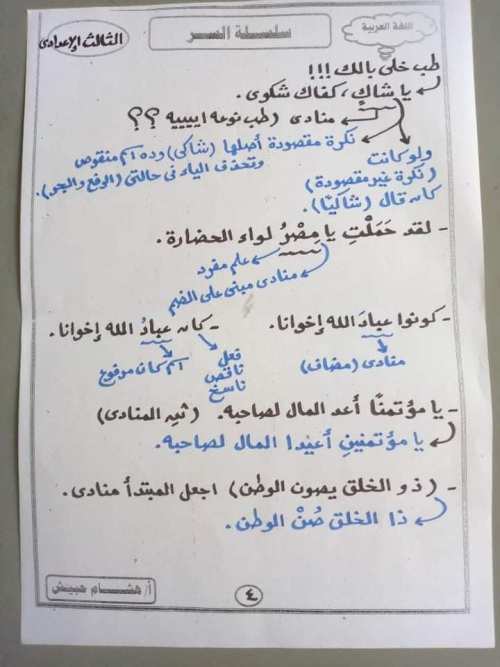 اللغة العربية
سلسلة السر
الثالث الإعدادى
طب خلى بالك !!!
يا شاكٍ، كفاك شكوى.
منادى (طب نوعه ايييه ؟؟
نكرة مقصودة أصلها (شاكى) وده اسم منقوص
وتحذف الياء فى حالتى (الرفع والجر).
ولو كانت
(نكرة غير مقصودة)
كان قال (شاكيًا).
- لقد حَمَلْتِ يا مِصْرُ لواء الحضارة.
علم مفرد
منادى مبنى على الضم
- كونوا عبادَ الله إخوانا.
منادى (مضاف)
- كان عبادُ الله إخوانا.
فعل ناقص ناسخ
اسم كان مرفوع
- يا مؤتمنًا أعد المال لصاحبه. (ثنِّ المنادى)
يا مؤتمنينِ أعيدا المال لصاحبه.
- (ذو الخلق يصون الوطن) اجعل المبتدأ منادى.
ذا الخلق صُنْ الوطن.
٤
أ/ هشام حبيش